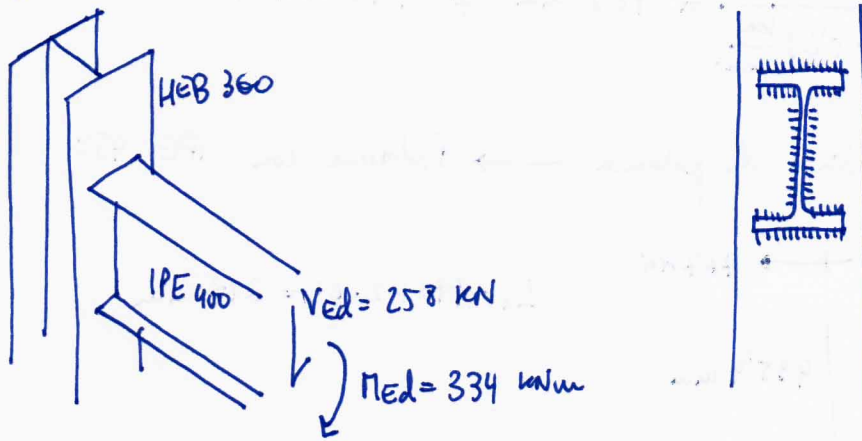 HEB 360
IPE 400
VEd = 258 KN
MEd = 334 kNm